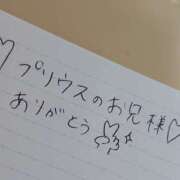 ♡プリウスのお兄様♡
ありがとう